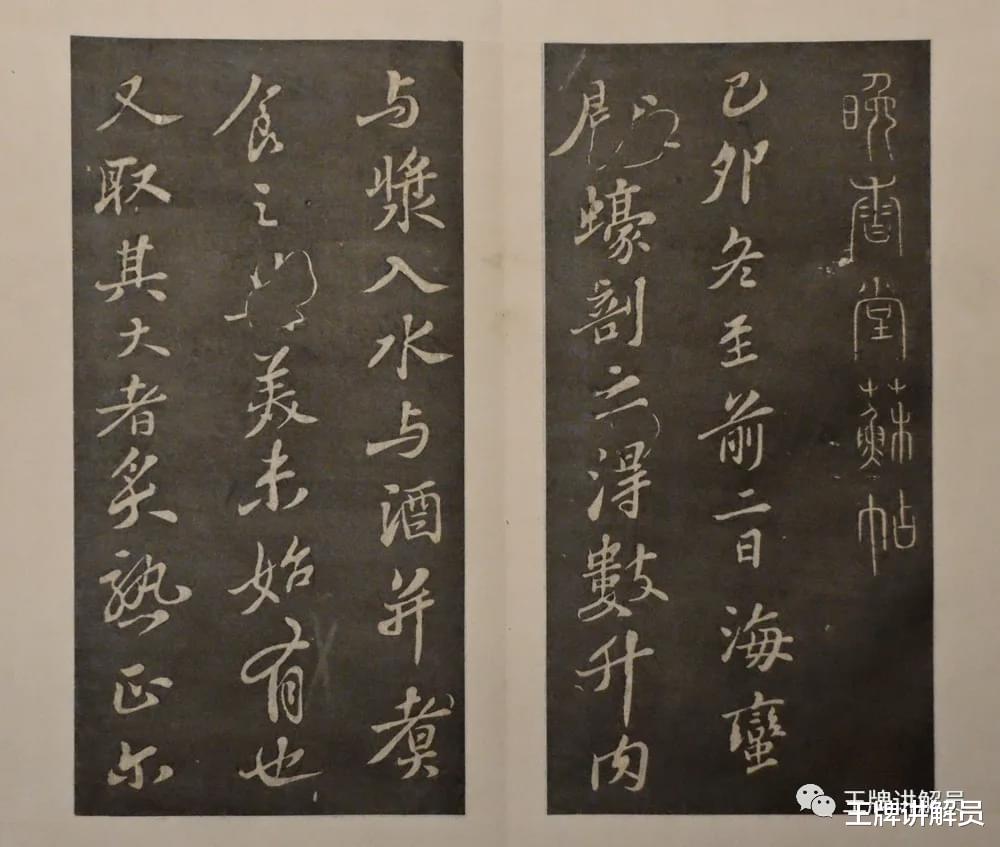 晚香堂蘇帖
己卯冬至前二日海蠻
蠔剖之得數升肉
与漿入水与酒并煮
食之美未始有也
又取其大者炙熟正尔
王牌讲解员
王牌讲解员